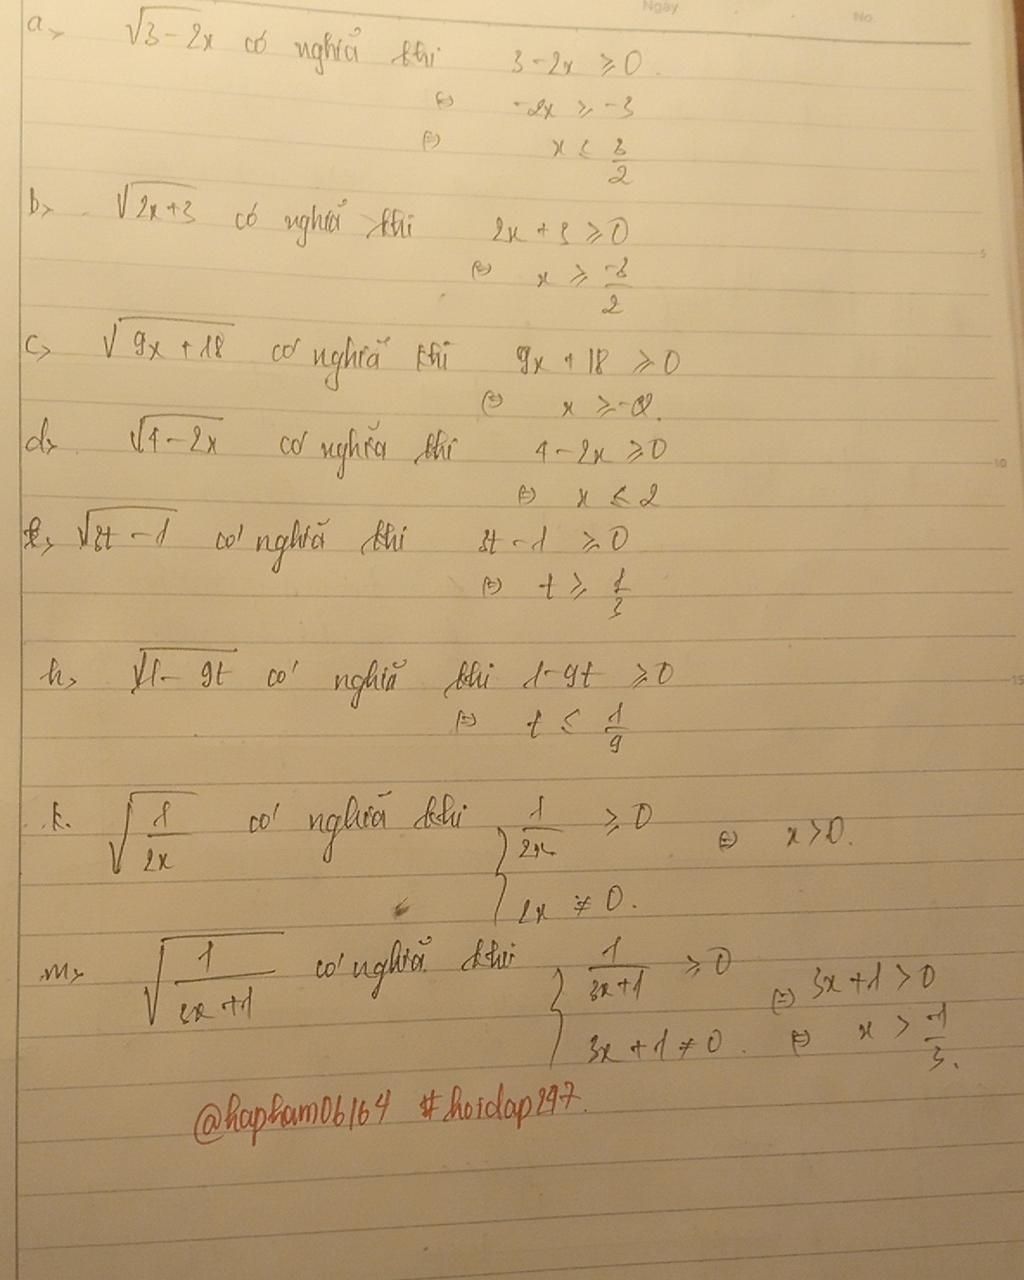 Ngày No.
a, √3-2x có nghĩa khi 3-2x ≥ 0.
(=) -2x ≥ -3
(=) x ≤ 3/2
b, √2x+3 có nghĩa khi 2x + 3 ≥ 0
(=) x ≥ -3/2
5
c, √9x+18 có nghĩa khi 9x + 18 ≥ 0
(=) x ≥ -2.
d, √4-2x có nghĩa khi 4-2x ≥ 0
10
(=) x ≤ 2
√3t-1 có nghĩa khi 3t-1 ≥ 0
(=) t ≥ 1/3
h, √1-9t có nghĩa khi 1-9t ≥ 0
15
(=) t ≤ 1/9
k. √1/2x có nghĩa khi { 1/2x ≥ 0 (=) x>0.
2x ≠ 0.
m, √1/3x+1 có nghĩa khi { 1/3x+1 ≥ 0 (=) 3x+1 > 0
3x+1 ≠ 0. (=) x > -1/3.
@hapham06164 #hoidap247.